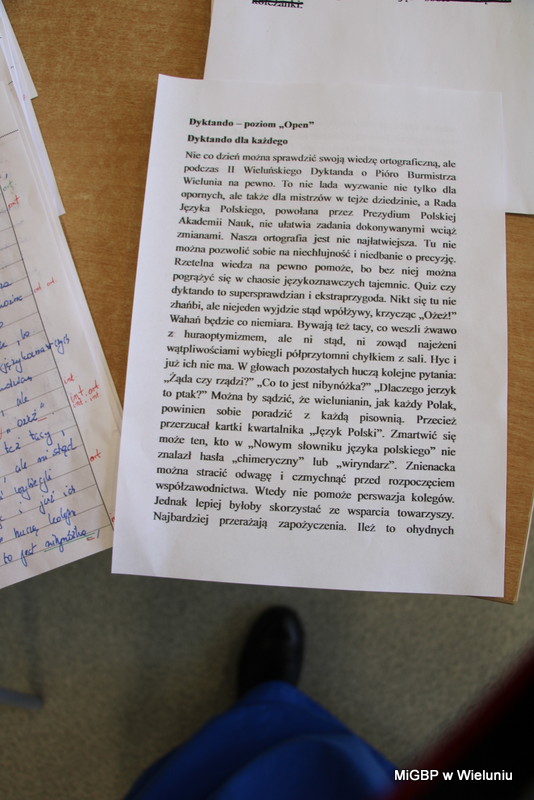 kolczanki.
Dyktando – poziom „Open”
Dyktando dla każdego
Nie co dzień można sprawdzić swoją wiedzę ortograficzną, ale
podczas II Wieluńskiego Dyktanda o Pióro Burmistrza
Wielunia na pewno. To nie lada wyzwanie nie tylko dla
opornych, ale także dla mistrzów w tejże dziedzinie, a Rada
Języka Polskiego, powołana przez Prezydium Polskiej
Akademii Nauk, nie ułatwia zadania dokonywanymi wciąż
zmianami. Nasza ortografia jest nie najłatwiejsza. Tu nie
można pozwolić sobie na niechlujność i niedbanie o precyzję.
Rzetelna wiedza na pewno pomoże, bo bez niej można
pogrążyć się w chaosie językoznawczych tajemnic. Quiz czy
dyktando to supersprawdzian i ekstraprzygoda. Nikt się tu nie
zhańbi, ale niejeden wyjdzie stąd wpółżywy, krzycząc „Ożeż!”
Wahań będzie co niemiara. Bywają też tacy, co weszli żwawo
z huraoptymizmem, ale ni stąd, ni zowąd najeżeni
wątpliwościami wybiegli półprzytomni chyłkiem z sali. Hyc i
już ich nie ma. W głowach pozostałych huczą kolejne pytania:
„Żąda czy rządzi?” „Co to jest nibynóżka?” „Dlaczego jerzyk
to ptak?” Można by sądzić, że wielunianin, jak każdy Polak,
powinien sobie poradzić z każdą pisownią. Przecież
przerzucał kartki kwartalnika „Język Polski”. Zmartwić się
może ten, kto w „Nowym słowniku języka polskiego” nie
znalazł hasła „chimeryczny” lub „wiryndarz”. Znienacka
można stracić odwagę i czmychnąć przed rozpoczęciem
współzawodnictwa. Wtedy nie pomoże perswazja kolegów.
Jednak lepiej byłoby skorzystać ze wsparcia towarzyszy.
Najbardziej przerażają zapożyczenia. Ileż to ohydnych
ale
"ożeż"
też tacy,
ale ni stąd
wybiegli
i już ich
huczą kolejne
to jest nibynóżka
ort
ort
ort
MiGBP w Wieluniu